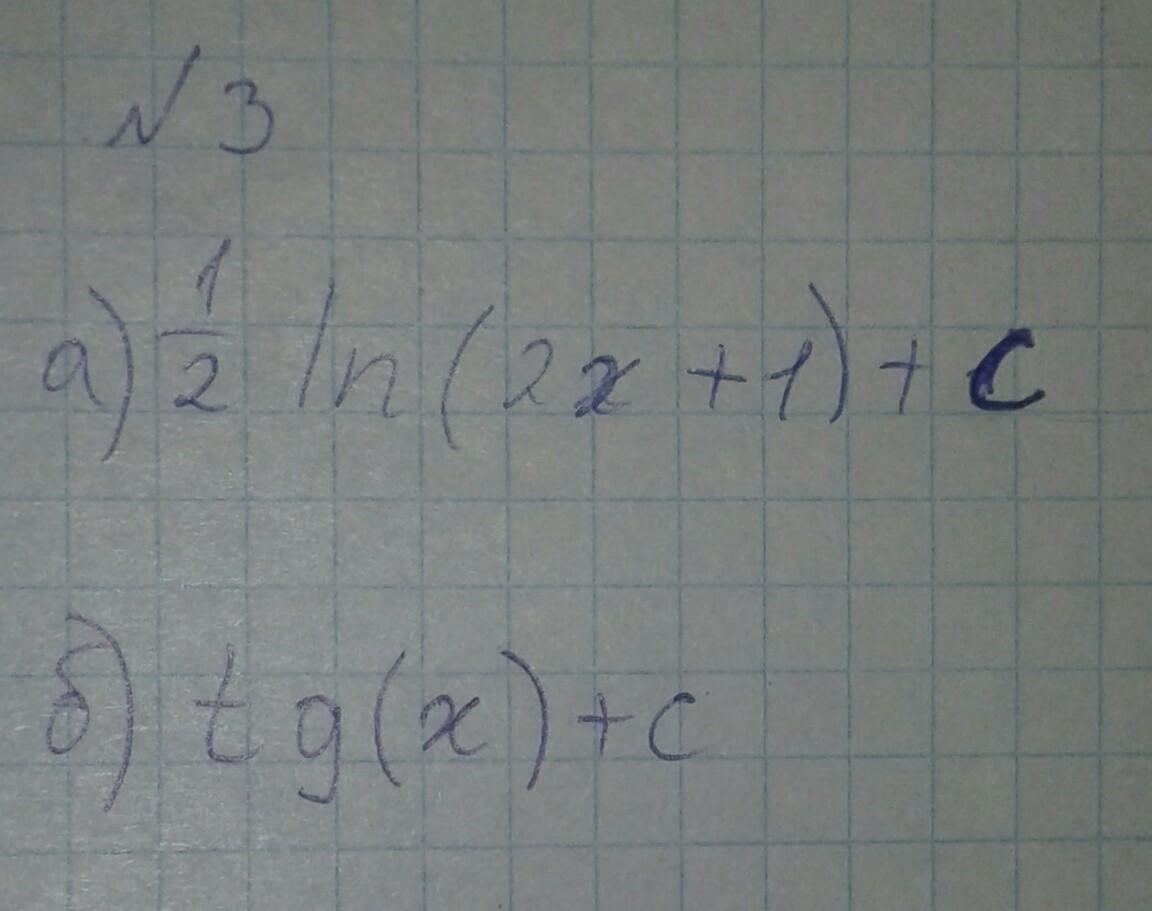 № 3
а) 1/2 ln(2x+1)+c
б) tg(x)+c